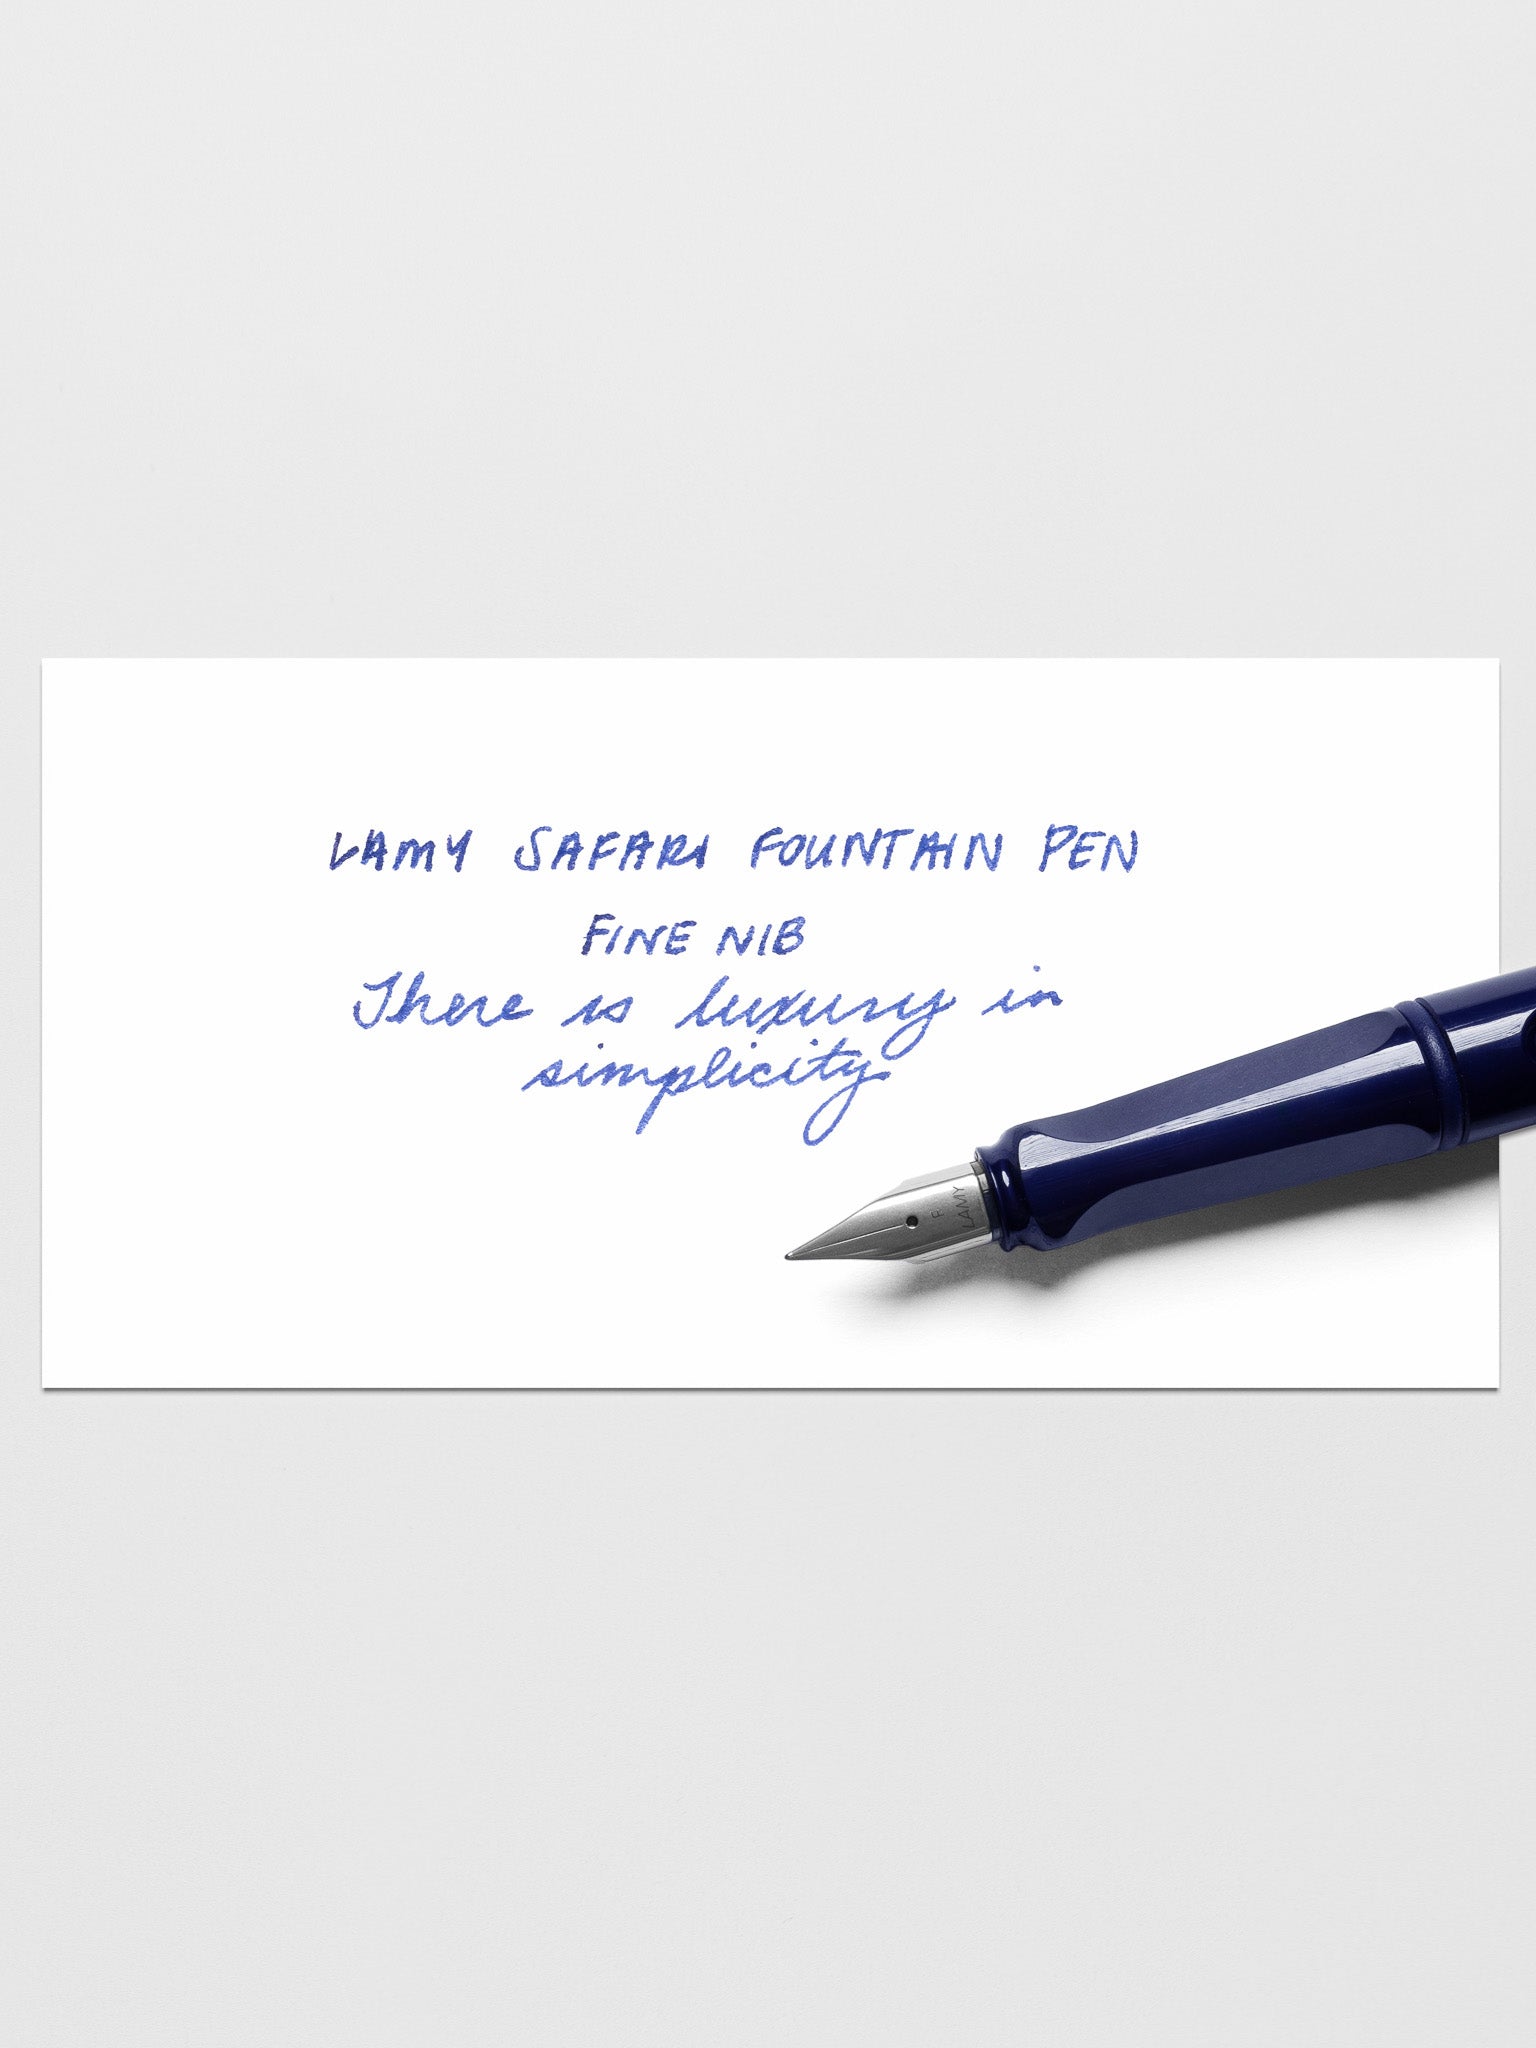 LAMY SAFARI FOUNTAIN PEN
FINE NIB
There is luxury in
simplicity
F
LAMY